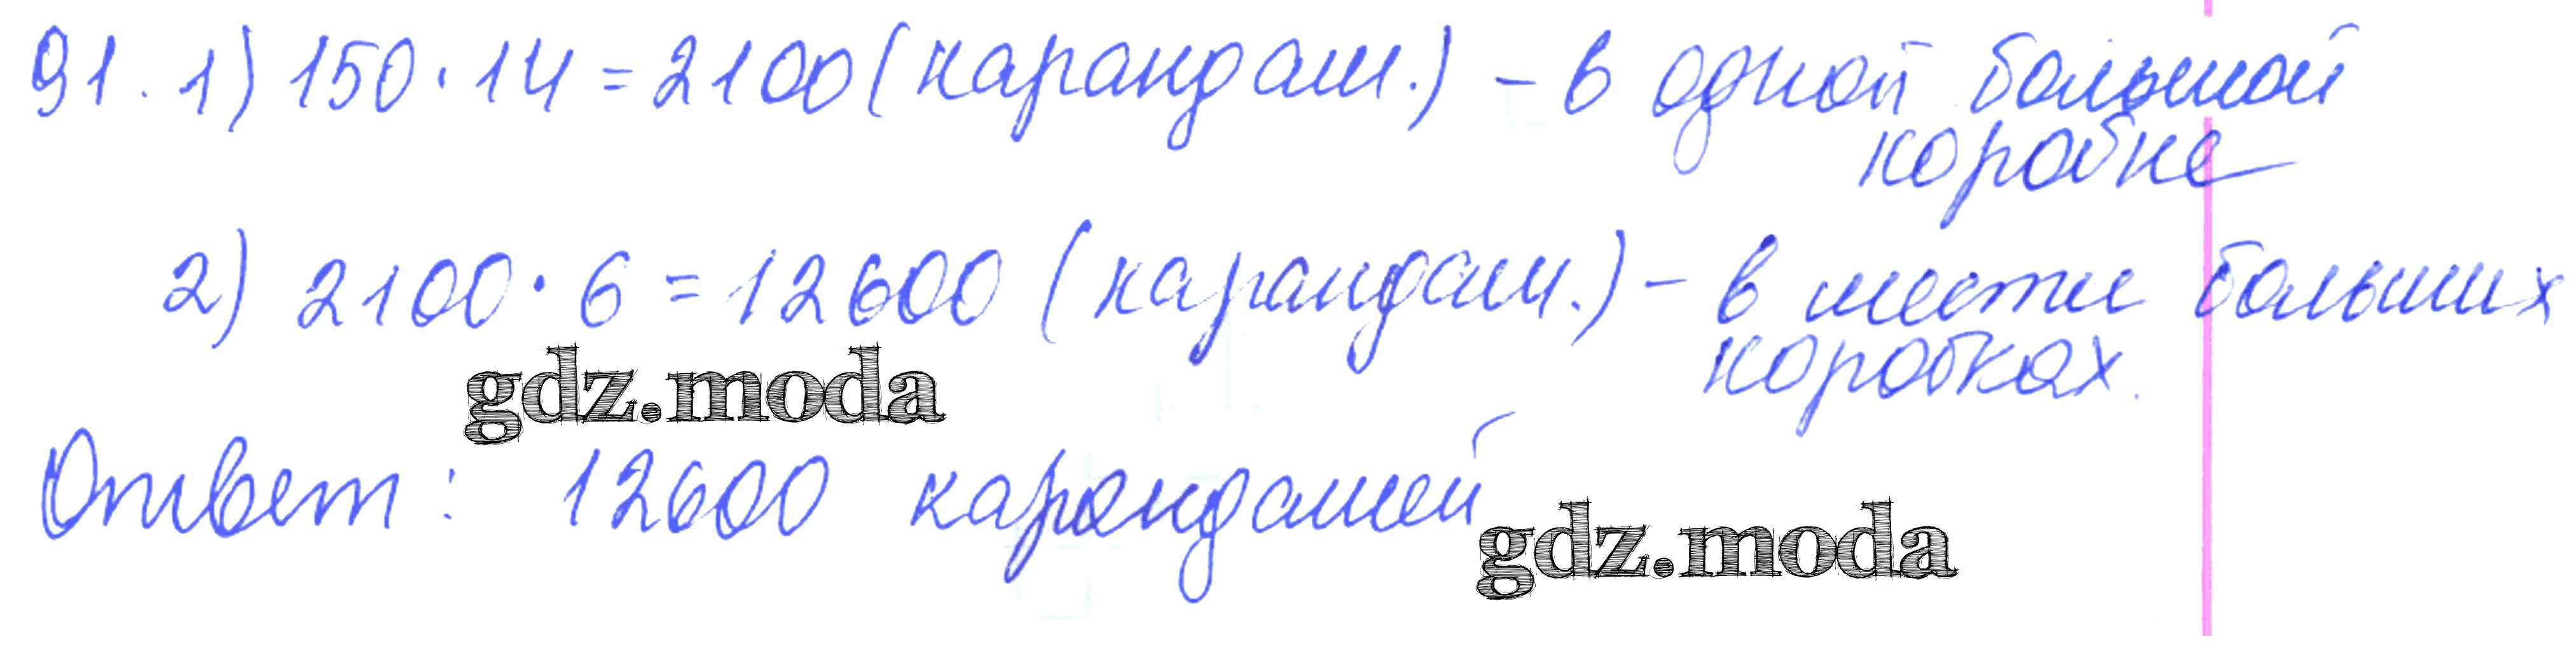 91. 1) 150 · 14 = 2100 (карандаш.) – в одной большой
коробке
2) 2100 · 6 = 12600 (карандаш.) – в шести больших
коробках.
gdz.moda
Ответ: 12600 карандашей
gdz.moda